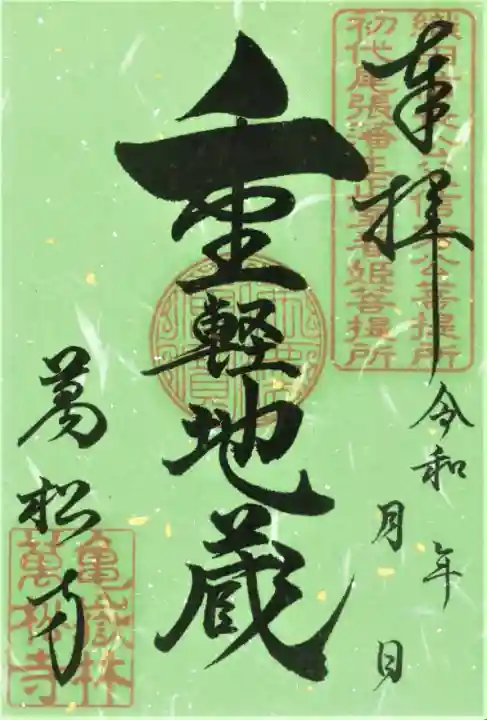 奉拝
令和 年 月 日
重軽地蔵
萬松寺
初代尾張藩主正室春姫菩提所
亀嶽林
萬松寺